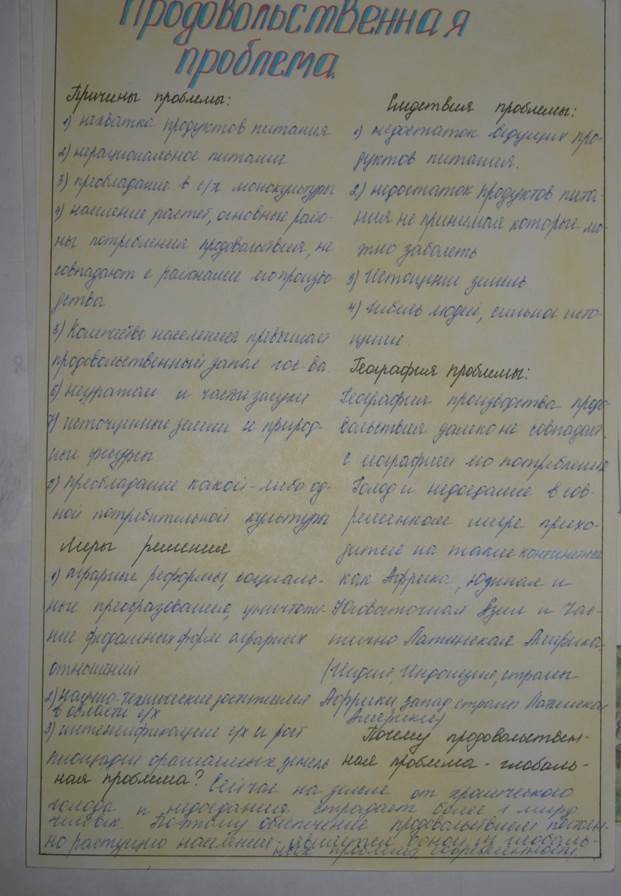 Продовольственная
проблема
Причины проблемы:
1) нехватка продуктов питания
2) нерациональное питание
3) преобладание в с/х монокультуры
4) население растет, основные райо-
ны потребления продовольствия, не
совпадают с районами его произво-
дства
5) Количество населения превышает
продовольственный запас гос-ва
6) неурожаи и части засухи
7) истощение земли и природ-
ные
8) преобладание какой-либо од-
ной потребительной культуры
Меры решения
1) Аграрные реформы, социаль-
ные преобразования, уничтоже-
ние феодальных форм аграрных
отношений
2) Научно-технические достижения
в области с/х
3) интенсификация с/х и рост
площади орошаемых земель
Следствия проблемы:
1) недостаток ведущих про-
дуктов питания.
2) недостаток продуктов пита-
ния не принимая которые мо-
жно заболеть
3) Истощение земель
4) Гибель людей, сильное исто-
щение
География проблемы:
География производства продо
вольствия далеко не совпадает
с географией его потребления
Голод и недоедание в сов-
ременном мире прихо-
дится на такие континенты
как Африка, Южная и
Юговосточная Азия и час-
тично Латинская Америка
(Индия, Индонезия, страны
Африки, запад страны Латинская
Америки)
Почему продовольствен-
ная проблема - глобаль-
ная проблема? Сейчас на земле от хронического
голода и недоедания страдает более 1 млрд
человек. Поэтому обеспечение продовольствием постоян-
но растущего населения является одной из глобаль-
ных проблем современности.